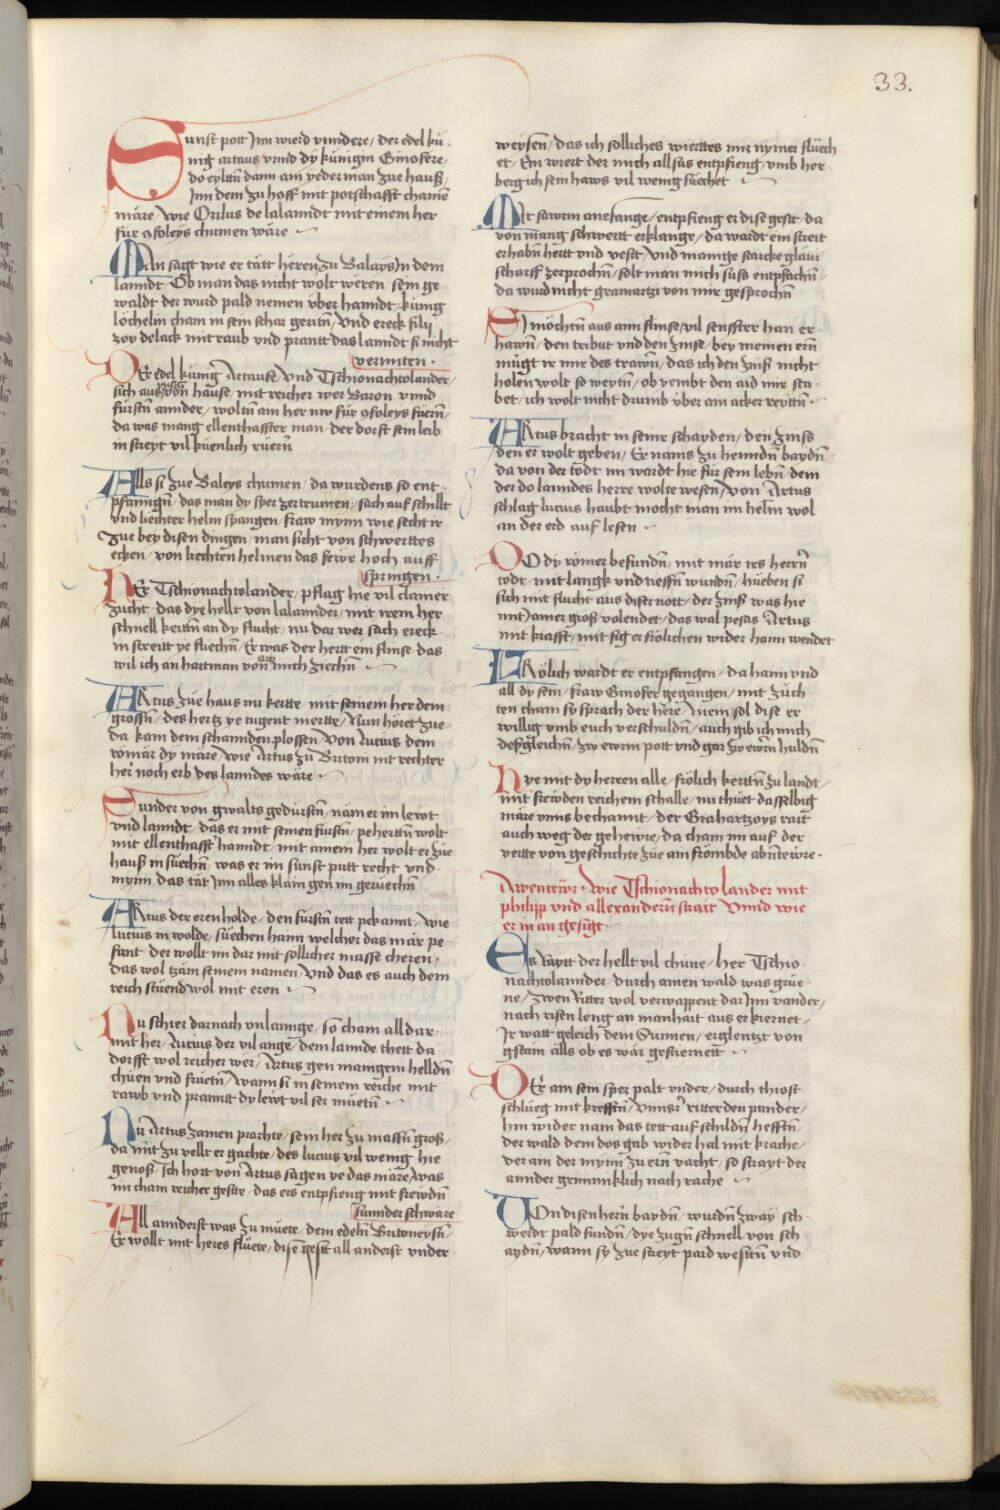 33.
Sunst pott Jm wierd vnndere / der edel kü-
nig artaus / vnnd dy künigin Ginofere /
do eyltñ dann am yederman zue hauß /
Jnn dem zu hoff mit potschafft chamē
märe / wie Orilus de lalanndt mit einem her
für ꝯfoleys chumen wäre
Man sagt wie er tätt herenn zu Balays Jn dem
lanndt / Ob man das nicht wolt weren / sein ge-
waldt der wurd pald nemen vber hanndt / künig
löchelin cham in sein schar geritñ / vnd ereck filij
zoy delack mit raub vnd prantt das lanndt si nicht
vermiten
Der edel künig Artause / vnd Tschionachtolander /
sich aus von hause / mit reicher wer Baron vnnd
fürstñ annder / woltñ am her nw für ꝯfoleys füerñ /
da was mang ellenthaffter man / der dorft sein leib
in streyt vil küenlich rüerñ
Alls si zue Baleys chumen / da wurdens so ent-
pfanngñ / das man dy sper zertrumen / sach auf schillt
vnd liechter helm spangen / fraw mynn wie secht ir
zue bey disen dingen / man sicht von schwerttes
ecken / von liechten helmen das fewr hoch auff
springen
Her Tschionachtolander / pflag hie vil clainer
zucht / das dye hellt von lalannder / mit irem her
schnell kertñ an dy flucht / nu dar wer sach ereck
in streitt ye fliechñ / Er was der hertt ein flinse das
wil ich an hartman von aw mich ziechñ
Artus zue haus nu kertte mit seinem her dem
grossñ / des hertz ye tugent mertte / Nun höret zue
da kam dem schannden plossen / von lucius dem
römär dy märe / wie Artus zu Britoni nit rechter
her noch erb des lanndes wäre
Sunder von gwalts gedürstñ / näm er im lewt
vnd lanndt / das er mit seinen fürstñ / pehertñ wolt
mit ellenthaffter hanndt / mit ainem her wolt er zue
hauß in süechñ / was er im sunst putt recht vnd
mynn das tät Jm alles klain gen im gerüechñ
Artus der eren holde / den fürstñ tett pekannt / wie
lucius in wolde / suechen hann welcher das mär pe
fant / der wollt im dar mit sollicher masse cheren /
das wol tzäm seinem namen / vnd das es auch dem
reich stüend wol mit eren
Nu schier darnach vnlannge / so cham all dar
mit her / lucius der vil ange / dem lannde thett da
dorfft wol reicher wer / Artus gen manigem helldñ
chüen vnd früetñ / wann si in seinem reiche mit
rawb vnd pranntt dy lewt vil ser müetñ
Nu Artus zamen prachte / sein her zu massñ groß /
da mit zu vellt er gachte / des lucius vil wenig hie
genoß / Ich hort von Artus sagen ye das märe / was
im cham reicher gestte / das ers entpfieng mit frewdñ
sunnder schwäre
All annderst was zu müete / dem edeln Britoneysñ /
Er wollt mit heres flüete / disñ gestt all anderst vnder-
weysen / das ich solliches wierttes mir nymer flüech
et / Ein wiert der mich allsus entpfieng / vmb her-
berg ich sein haws vil wenig süechet
Mit sawrm anefange / entpfieng er dise gestt / da
von mang schwertt erklange / da wardt ein streit
erhabñ hertt vnd vestt / vnd manige starcke gläui
scharff zerprochñ / solt man mich süss entpfachñ
da wurd nicht gramartzi von mir gesprochñ
Si möchtñ aus aim flinse / vil sennffter han er-
hawñ / den tribut vnd den zinse / bey meinen ern
mügt ir mir des trawñ / das ich den zinß nicht
holen wolt so weytñ / ob yembt den aid mir sta-
bet / ich wolt nicht drumb vber ain acker reyttñ
Artus bracht in seine schayden / den zinse
den er wolt geben / Er nams zu henndñ baydñ
da von der todt im wardt hie für sein lebñ / dem
der do lanndes herre wolte wesen / von Artus
schlag lucius haubt mocht man im helm wol
an der erd auf lesen
Do dy römer befundñ / mit mär irs herrñ
todt / mit langk vnd tieffñ wundñ / hueben si
sich mit flucht aus diser nott / der zinß was hie
mit Jamer groß volendet / das wal pesas Artus
mit krafft / mit sig er frölichen wider haim wendet
Frölich wardt er entpfangen / da haim vnd
all dy sein / fraw Ginofer gegangen / mit züch-
ten cham sy sprach der here / mein sol dise er
willig vmb euch verschuldñ / auch gib ich mich
desgleichñ / zw ewrm pott vnd gar zw ewrñ huldñ
Hye mit dy herren alle / frölich kertñ zu landt /
mit frewden reichem schalle / nu thüet dasselbig
märe vnns bechannt / der Grahartzoys rait
auch weg der gehewre / da cham im auf der
vertte von geschichte zue ain frömbde abntewre
Awentewr / wie Tschionachtolander mit
philipp vnd allexanderñ strait vnnd wie
er in an gesigt
Es rayit der hellt vil chüne / her Tschio
nachtolannder / durch ainen wald was grüe
ne / zwen Ritter wol verwappent dar Jnn vander /
nach risen leng an manhait aus erkiernet /
Ir watt geleich dem Sunnen / erglentzt von
gstain alls ob es wär gestiernett
Der am sein sper palt vnder / durch thiost
schlueg mit krefftñ / vnnser ritter den punder /
hin wider nam das tett auf schildñ hefftñ
der wald dem dos gab wider hal mit krache /
der am der mynn zu ern vacht / so strayt der
annder grimmklich nach rache
Von disen hern baydñ / wurdñ zway sch-
werdt pald fundñ / dye zugñ schnell von sch
aydñ / wann sy zue streyt paid westtñ vnd